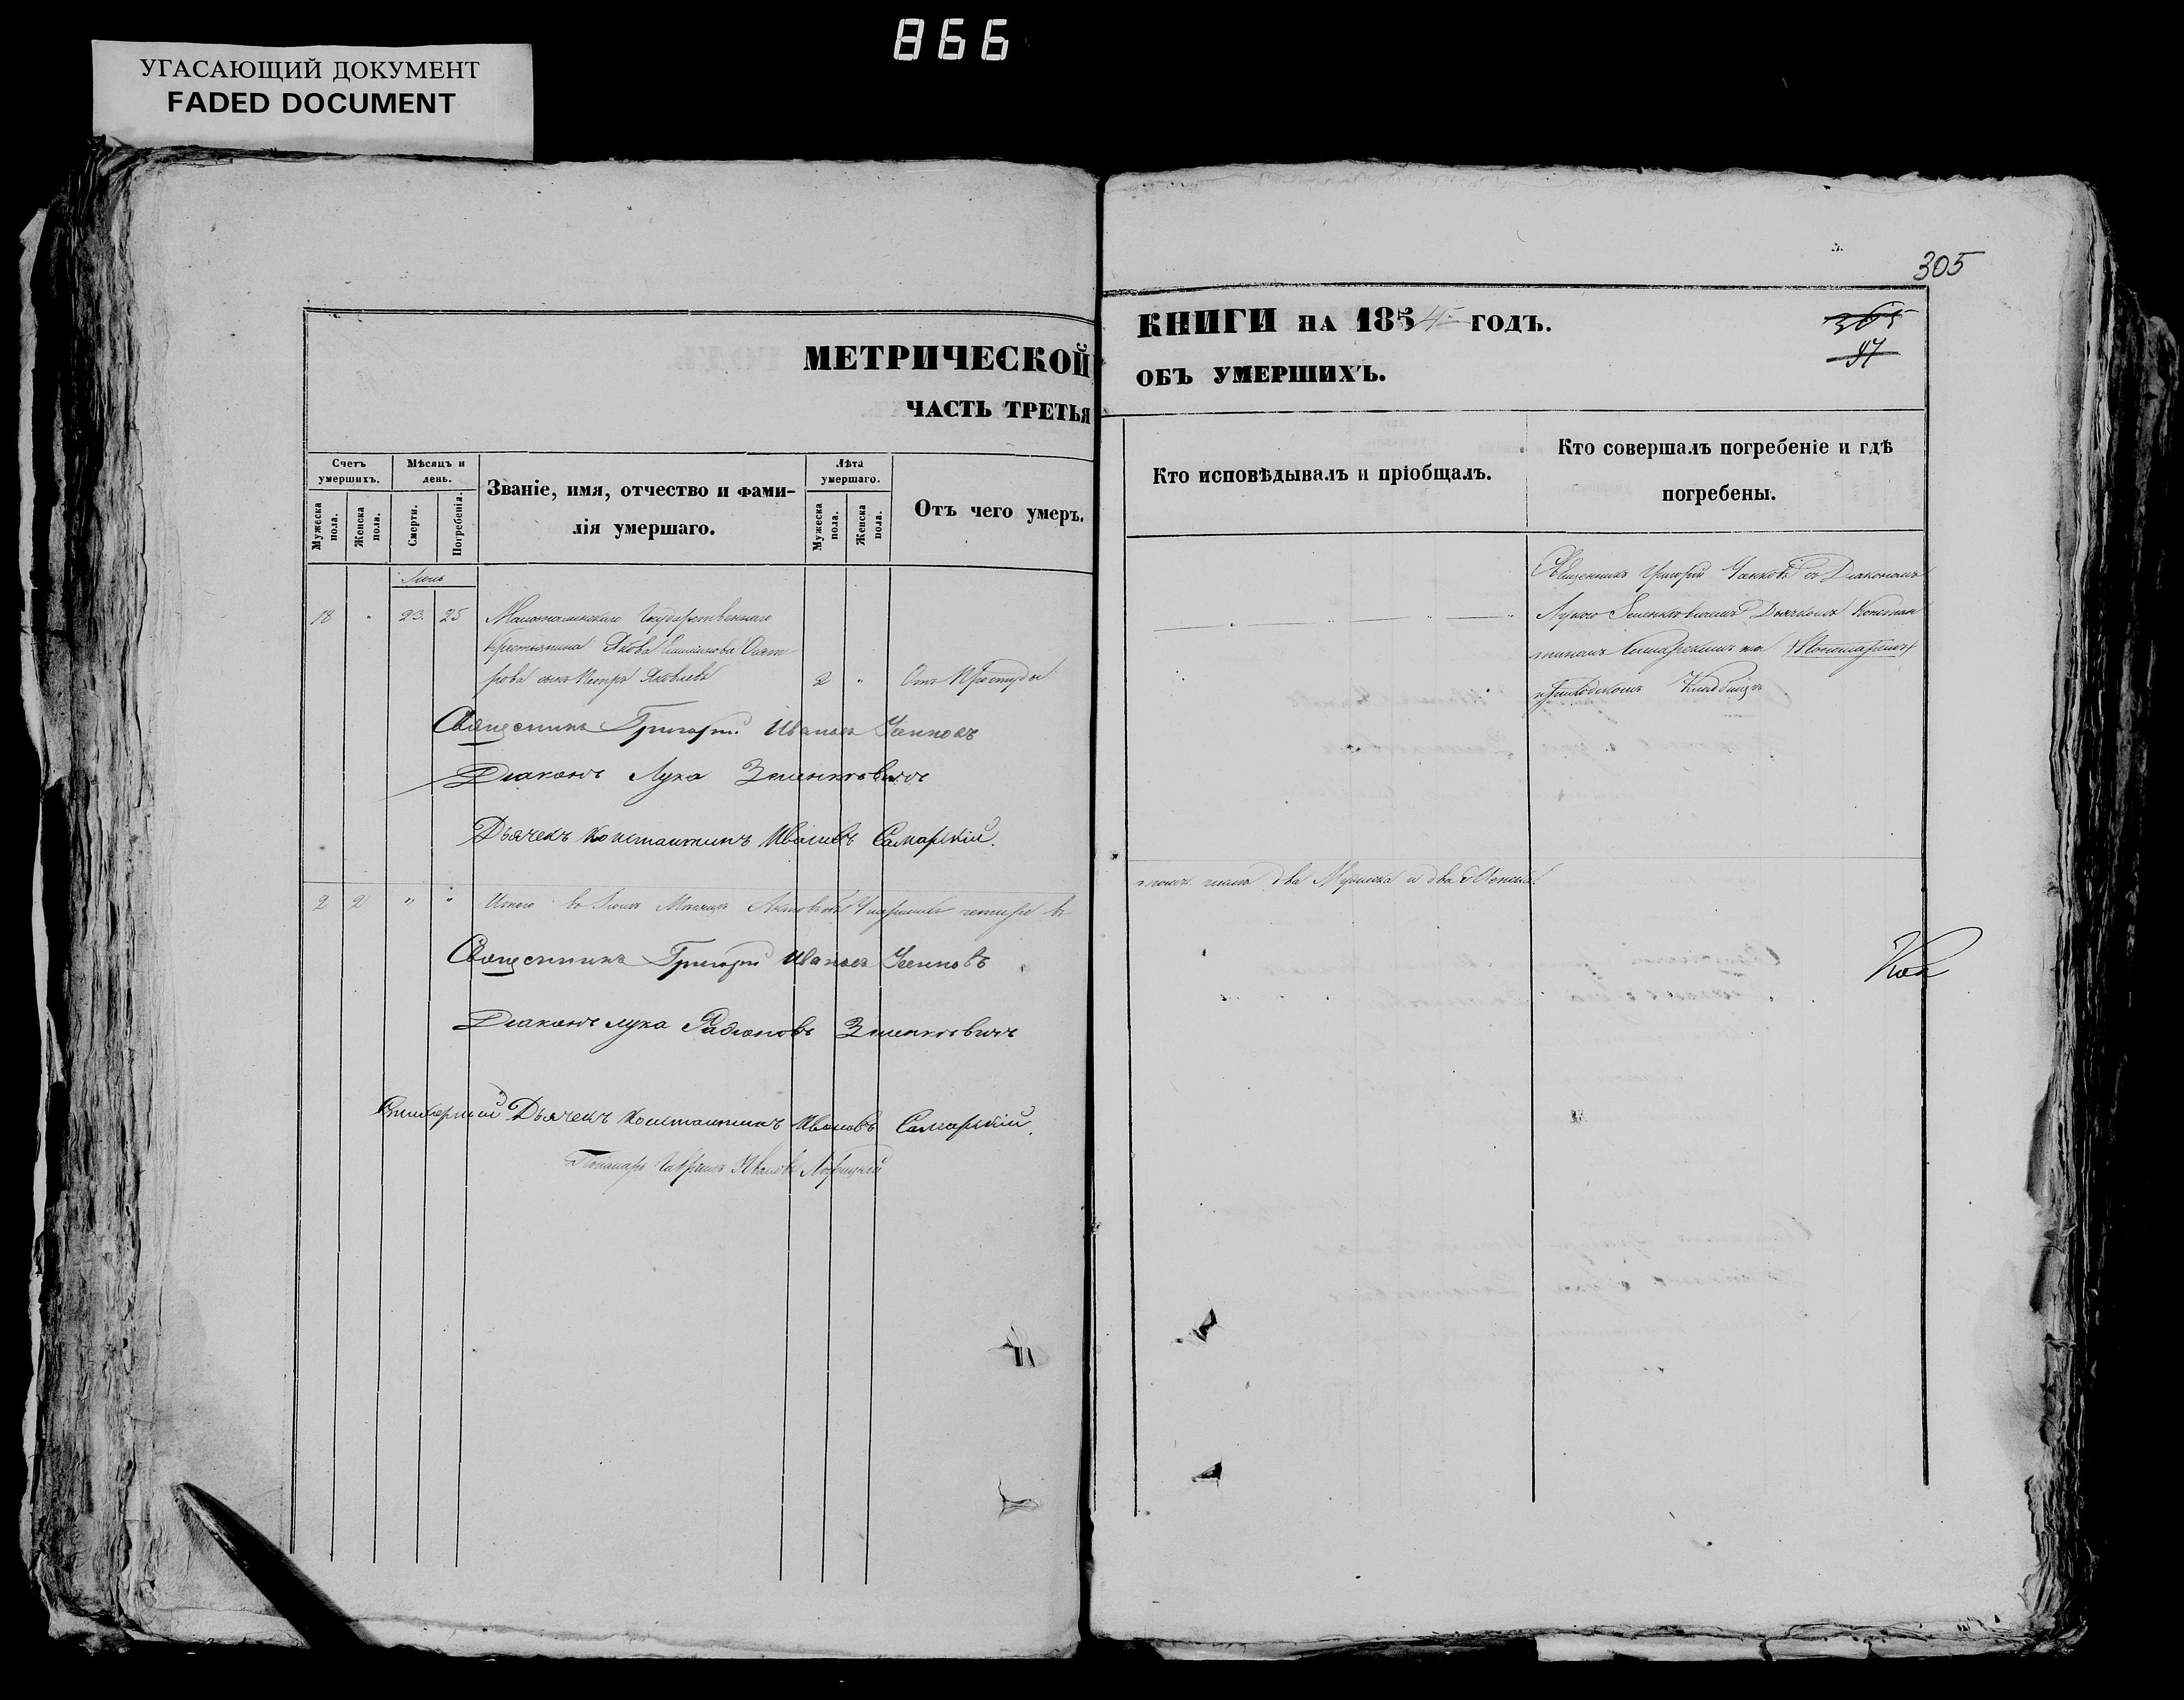 866
УГАСАЮЩИЙ ДОКУМЕНТ
FADED DOCUMENT
305
МЕТРИЧЕСКОЙ
ЧАСТЬ ТРЕТЬЯ
КНИГИ НА 1854 ГОДЪ.
ОБЪ УМЕРШИХЪ.
365
97
Счетъ умершихъ.
Мужеска пола.
Женска пола.
Мѣсяцъ и день.
Смерти.
Погребенія.
Званіе, имя, отчество и фамилія умершаго.
Лѣта умершаго.
Мужеска пола.
Женска пола.
Отъ чего умеръ.
Кто исповѣдывалъ и пріобщалъ.
Кто совершалъ погребеніе и гдѣ
погребены.
18 " 23. 25
Государственнаго
Крестьянина Якова
сынъ Петръ Яковлевъ 2 " Отъ Простуды
Священникъ Григорій съ Діакономъ
Лукою Дьячкомъ Констан
тиномъ Самарскимъ на Пономаремъ
приходскомъ Кладбищѣ
Священникъ Григорій Ивановъ
Діаконъ Лука Зеленкевичъ
Дьячекъ Константинъ Ивановъ Самарскій.
2 2 " " Итого въ Мѣсяцѣ четыре въ
томъ числѣ два Мужеска и два Женска.
Священникъ Григорій Ивановъ
Діаконъ Лука Родіоновъ Зеленкевичъ
Дьячекъ Константинъ Ивановъ Самарскій.
Пономарь Ивановъ